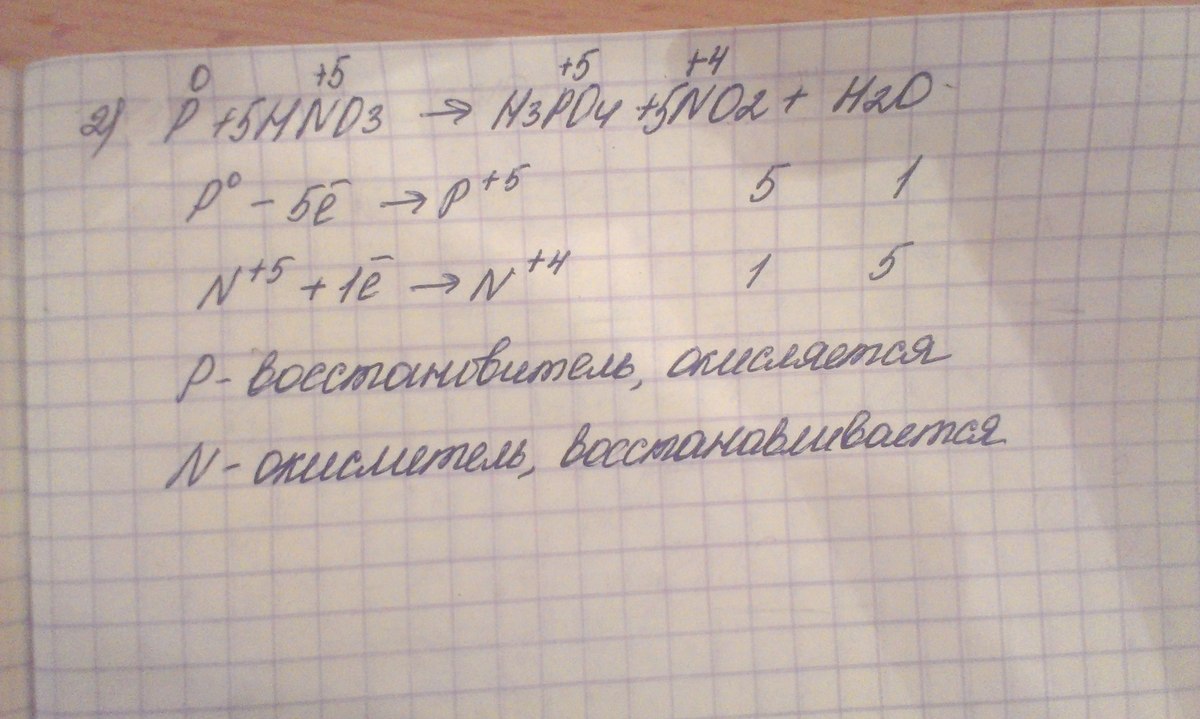 2) P⁰ + 5HN⁺⁵O3 → H3P⁺⁵O4 + 5N⁺⁴O2 + H2O
P⁰ - 5ē → P⁺⁵ 5 1
N⁺⁵ + 1ē → N⁺⁴ 1 5
P - восстановитель, окисляется
N - окислитель, восстанавливается